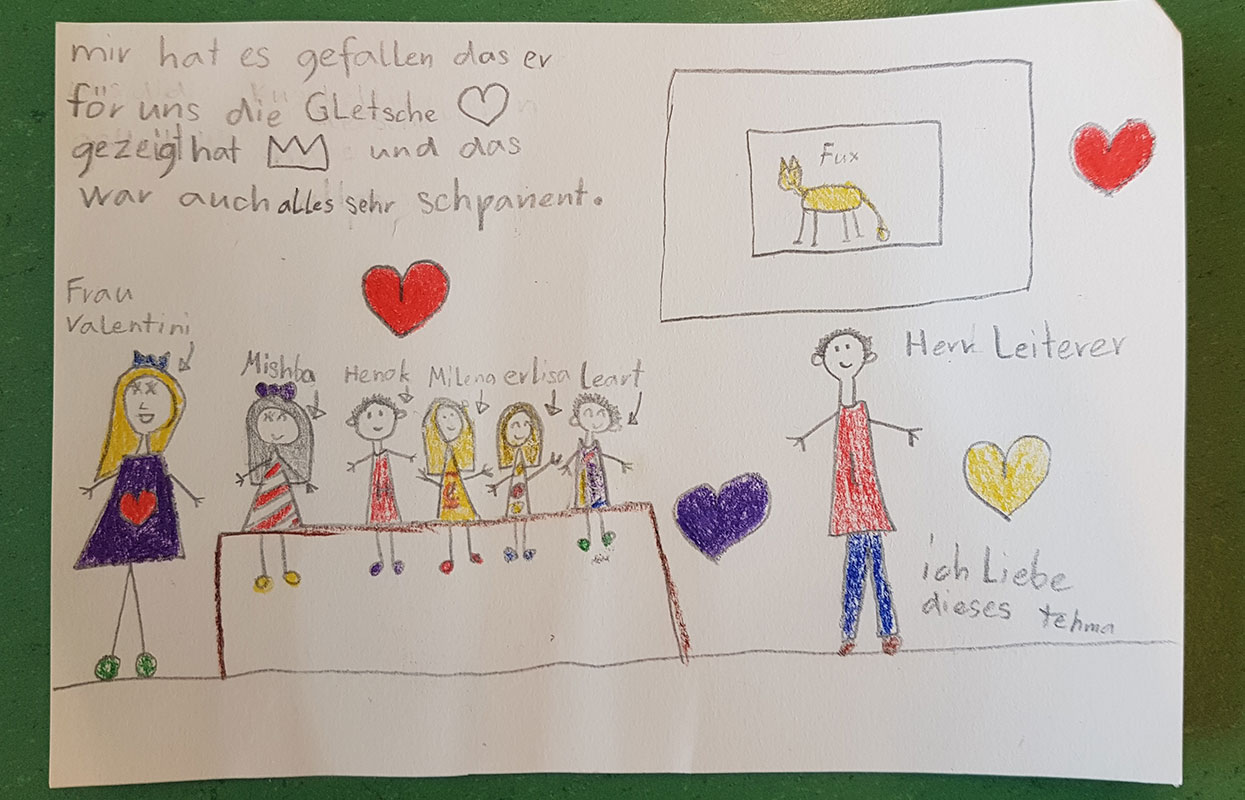 mir hat es gefallen das er
för uns die GLetsche
gezeigt hat und das
war auch alles sehr schpanent.
Fux
Frau
Valentini
Mishba
Henok
Milena
erlisa
Leart
Herr Leiterer
ich Liebe
dieses tehma